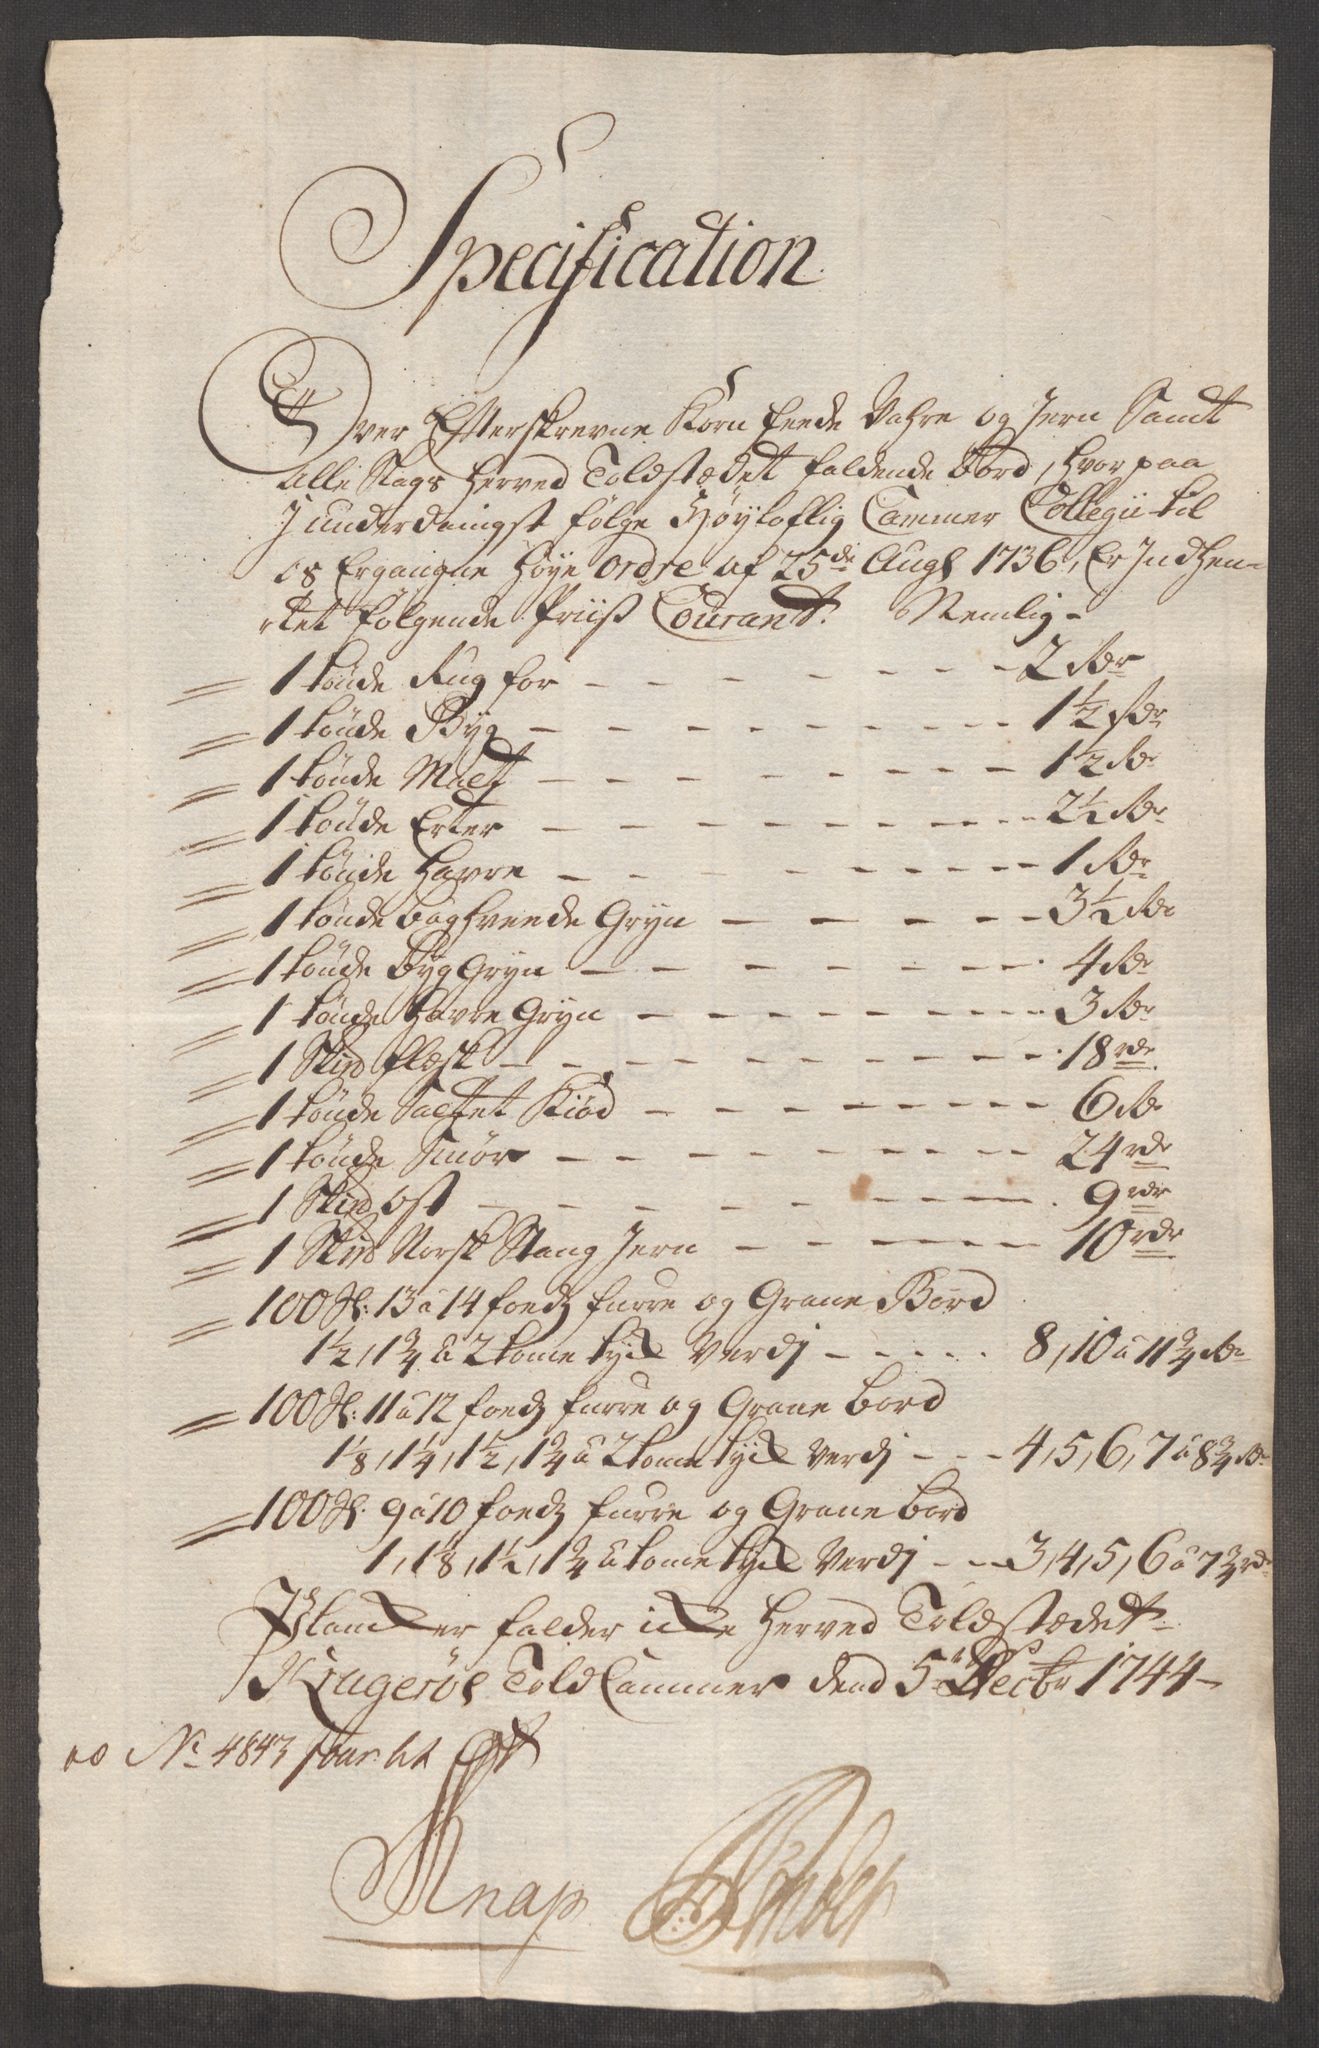 Specification
Over Efterskrevne Korn Feede Vahre og Jern Samt
Alle Slags Herved Toldstædet faldende bord, Hvorpaa
I underdanigst følge Høyloflig Cammer Collegii til
os Ergangne Høye ordre af 25de Augs 1736, Er Indhen-
tet følgende Priis Courant. Nemlig-
1 tønde Rug for - - - 2 Rdr
1 tønde Byg - - - 1½ Rdr
1 tønde Malt - - - 1½ Rdr
1 tønde Erter - - - 2½ Rdr
1 tønde Havre - - - 1 Rdr
1 tønde boghveede Gryn - - - 3½ Rdr
1 tønde byg Gryn - - - 4 Rdr
1 tønde Havre Gryn - - - 3 Rdr
1 Skпd flæsk - - - 18 rdr
1 tønde Saltet Kiød - - - 6 Rdr
1 tønde Smør - - - 24 rdr
1 Skpd ost - - - 9 rdr
1 Skpd Norsk Stang Jern - - - 10 rdr
100 St: 13 a 14 foeds furre og Grane Bord
1½, 1¾ a 2 tome tyck Verdj - - - 8, 10 a 11¾ Rdr
100 St: 11 a 12 foeds furre og Grane bord
1⅛, 1¼, 1½, 1¾ a 2 tome tyck Verdj - - - 4, 5, 6, 7 a 8¾ Rdr
100 St: 9 a 10 foeds furre og Grane bord
1, 1⅛, 1½, 1¾ a tome tyck Verdj - - 3, 4, 5, 6 a 7¾ rdr
Plancker falder icke Herved Toldstædet
Kragerøe Told Cammer dend 5te Decbr 1744
No 4843
Knap